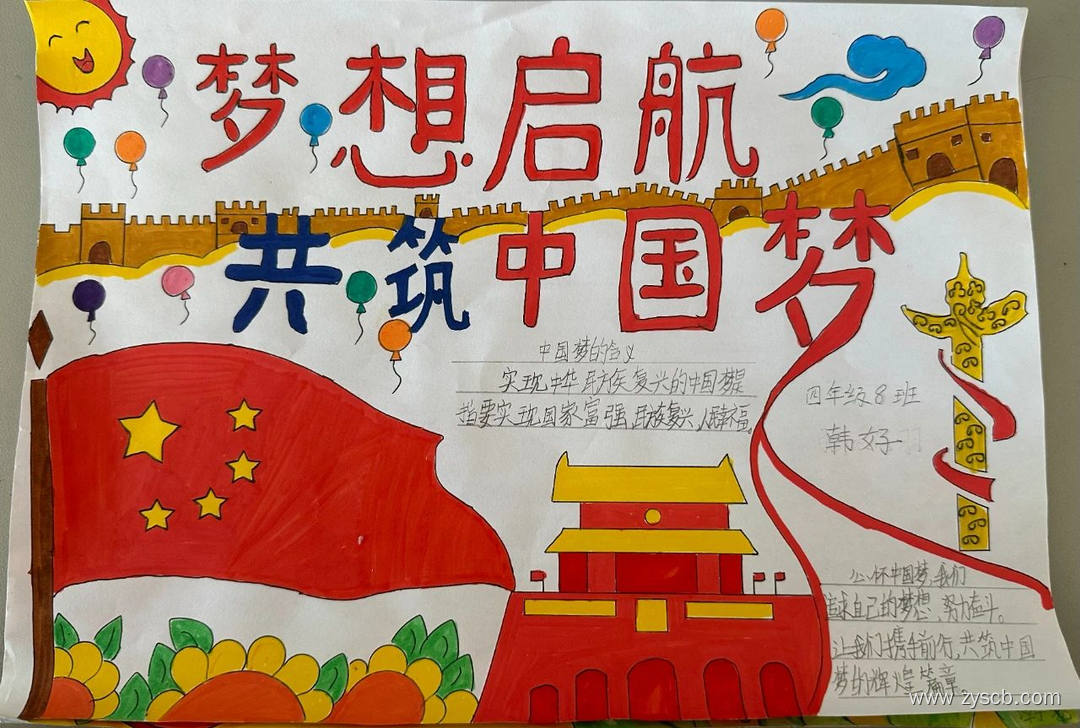 梦想启航
共筑中国梦
中国梦的含义
实现中华民族复兴的中国梦是
指要实现国家富强,民族复兴,人民幸福。
四年级8班
韩好
心怀中国梦,我们
追求自己的梦想,努力奋斗。
让我们携手前行,共筑中国
梦的辉煌篇章。
www.zyscb.com